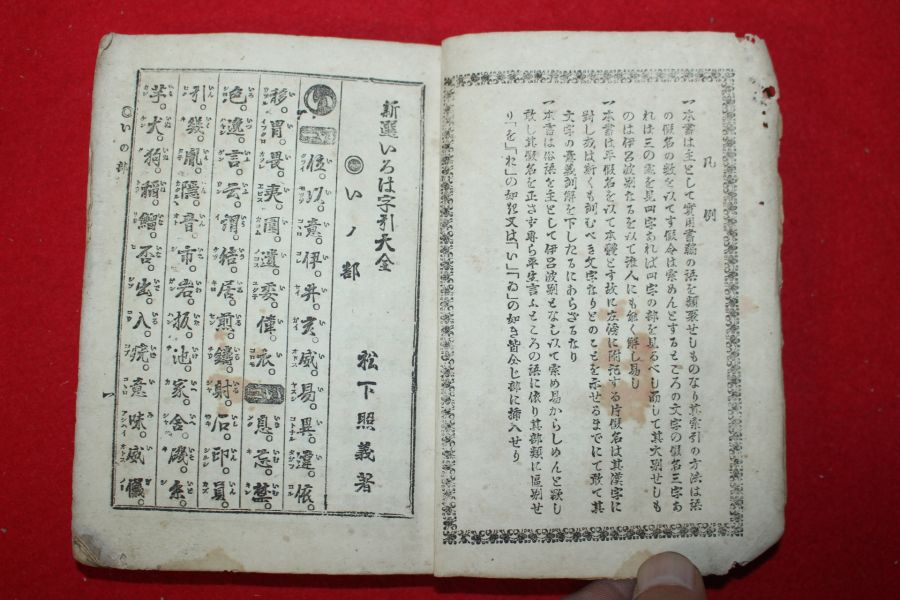 凡例
一本書は主として實用書翰の語を類聚せしものなり其索引の方法は語
の假名の數を以てす假令は索めんとするところの文字の假名三字あ
れは三の處を見四字あれは四字の部を見るべし而して其大別せしも
のは伊呂波別たるを以て達人にも能く解し易し
一本書は平假名を以て本體とす故に左傍に附記する片假名は其漢字に
對し或は斯くも訓むべき文字なりとのことを示せるまでにて敢て其
文字の意義訓解を下したるにあらざるなり
一本書は俗語を主として伊呂波別となし以て索め易からしめんと欲し
敢て其假名を正さず專ら平生言ふところの語に依り其部類に區別せ
り「を」「お」の如き又は「い」「ゐ」の如き皆仝じ部に挿入せり
新選いろは字引大全
いノ部
松下照義著
位。以。意。伊。井。亥。威。易。異。違。依
移。胃。畏。夷。圍。遺。委。偉。衣。息。忌。
色。逸。言。云。謂。居。煎。鑄。射。石。印。員
引。胤。隱。音。市。岩。板。池。家。今。磯。糸。
芋。犬。狗。稲。否。出。入。疣。意味。威儀。
いの部